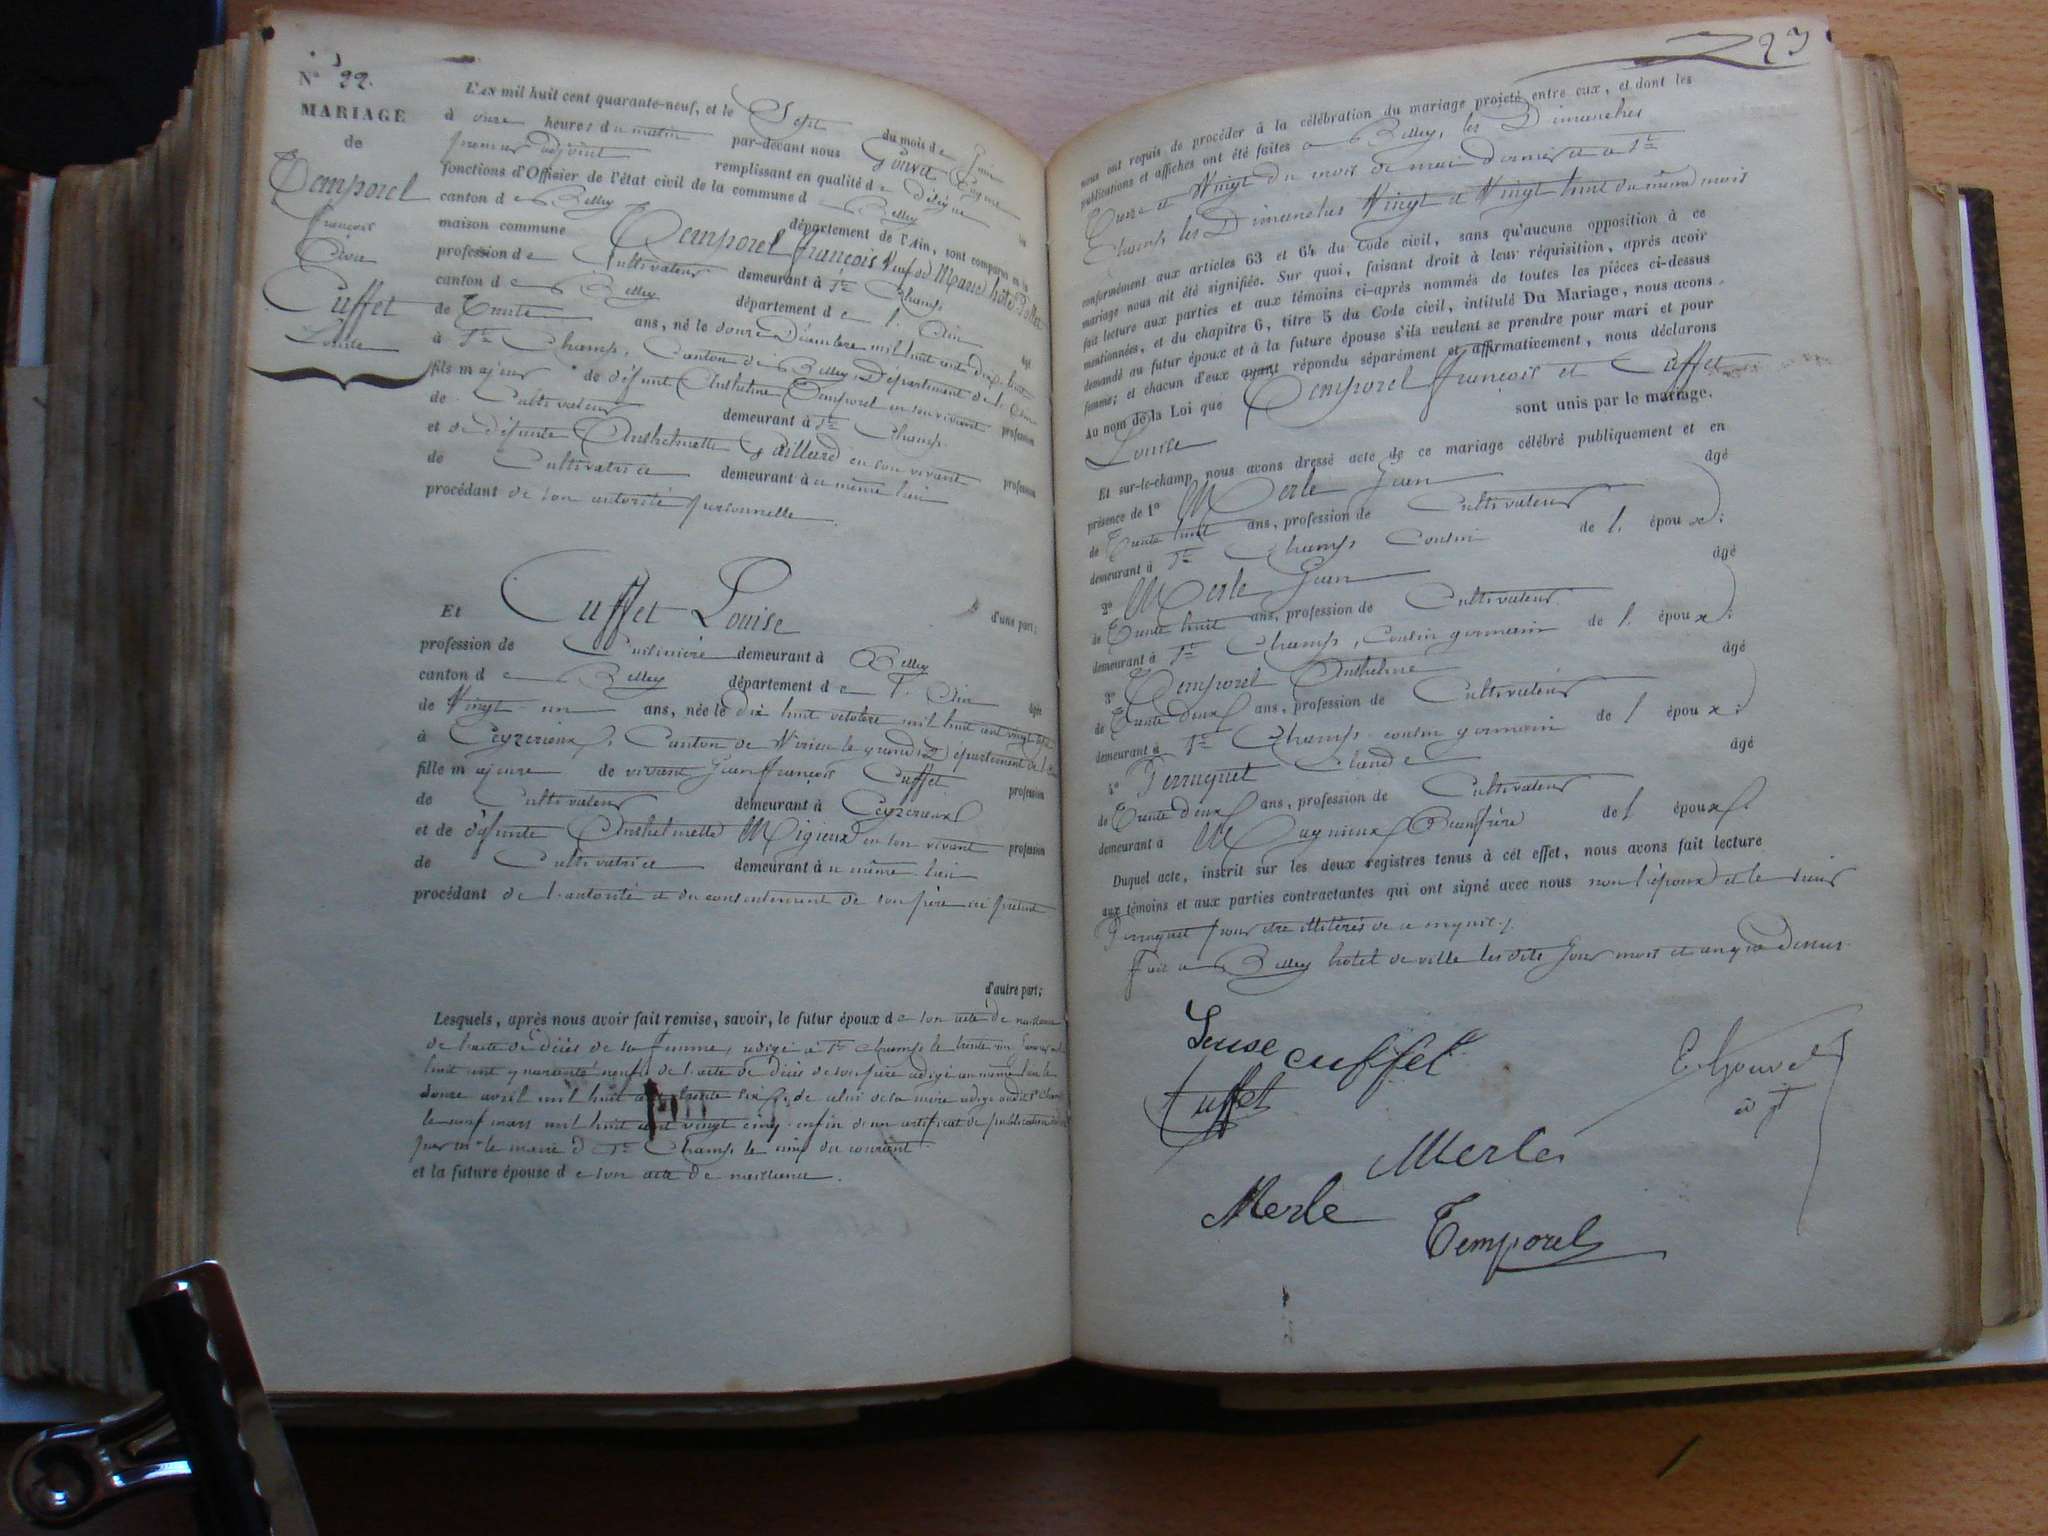 N° 22.
MARIAGE
de
Temporel
François
Et
Cuffet
Louise
L'AN mil huit cent quarante-neuf, et le Sept du mois de Juin
à onze heures du matin par-devant nous Gouvet Eugène
premier adjoint remplissant en qualité de délégué les
fonctions d'Offisier de l'état civil de la commune de Belley
canton de Belley département de l'Ain, sont comparus en la
maison commune Temporel François Veuf de Marie
profession de Cultivateur demeurant à St Champ
canton de Belley département de l'Ain âgé
de Trente ans, né le douze Décembre mil huit cent dix huit
à St Champ, Canton de Belley, Département de l'Ain
fils majeur de défunt Anthelme Temporel en son vivant profession
de Cultivateur demeurant à St Champ
et de défunte Anthelmette Gaillard en son vivant profession
de Cultivatrice demeurant à u même lieu
procédant de son autorité personnelle
d'une part;
Et Cuffet Louise
profession de Cuisinière demeurant à Belley
canton de Belley département de l'Ain âgée
de Vingt-un ans, née le dix huit octobre mil huit cent vingt sept
à Ceyzerieux, Canton de Virieu le grand, Département de l'Ain
fille majeure de vivant Jean François Cuffet profession
de Cultivateur demeurant à Ceyzerieux
et de défunte Anthelmette Migieux en son vivant profession
de Cultivatrice demeurant à u même lieu
procédant de l'autorité et du consentement de son père ici présent
d'autre part;
Lesquels, après nous avoir fait remise, savoir, le futur époux de son acte de naissance
de l'acte de Décès de sa femme, rédigé à St Champ le trente un Janvier mil
huit cent quarante neuf, de l'acte de décès de son père rédigé au même lieu le
douze avril mil huit cent trente six, de celui de sa mère rédigé audit St Champ
le neuf mars mil huit cent vingt cinq, enfin d'un certificat de publication
par Mr le maire de St Champ le cinq du courant
et la future épouse de son acte de naissance.
23
nous ont requis de procéder à la célébration du mariage projeté entre eux, et dont les
publications et affiches ont été faites à Belley, les Dimanches
Treize et Vingt du mois de mai dernier et à St
Champ les Dimanches Vingt et Vingt huit du même mois
conformément aux articles 63 et 64 du Code civil, sans qu'aucune opposition à ce
mariage nous ait été signifiée. Sur quoi, faisant droit à leur réquisition, après avoir
fait lecture aux parties et aux témoins ci-après nommés de toutes les pièces ci-dessus
mentionnées, et du chapitre 6, titre 5 du Code civil, intitulé Du Mariage, nous avons
demandé au futur époux et à la future épouse s'ils veulent se prendre pour mari et pour
femme; et chacun d'eux ayant répondu séparément et affirmativement, nous déclarons
Au nom de la Loi que Temporel François et Cuffet
Louise sont unis par le mariage.
Et sur-le-champ nous avons dressé acte de ce mariage célébré publiquement et en
présence de 1° Merle Jean âgé
de Trente huit ans, profession de Cultivateur
demeurant à St Champ Cousin de l' époux;
2° Merle Jean âgé
de Trente huit ans, profession de Cultivateur
demeurant à St Champ, Cousin germain de l' époux;
3° Temporel Anthelme âgé
de Trente deux ans, profession de Cultivateur
demeurant à St Champ cousin germain de l' époux;
4° Perruquet Claude âgé
de Trente deux ans, profession de Cultivateur
demeurant à Magnieux Beau frère de l' époux.
Duquel acte, inscrit sur les deux registres tenus à cet effet, nous avons fait lecture
aux témoins et aux parties contractantes qui ont signé avec nous non l'époux et le sieur
Perruquet pour être illitérés de ce enquis.
Fait à Belley hôtel de ville les dits Jour mois et an que Dessus.
Leuse cuffet
Cuffet
E. Gouvet
adjt
Merle
Merle
Temporel